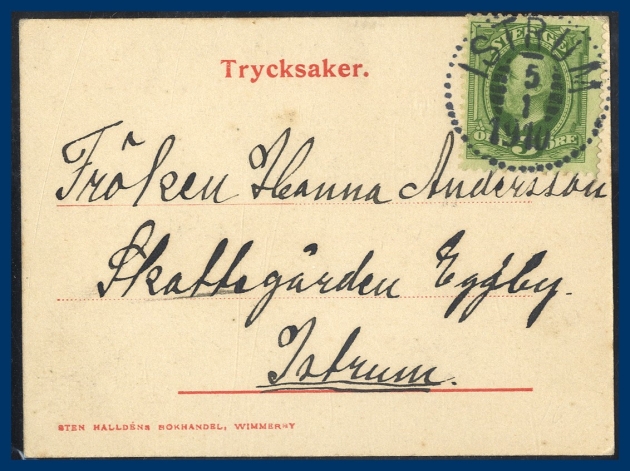 Trycksaker.
SVERIGE
ISTRUM
5
1
1910
ÖRE
Fröken Hanna Andersson
Skattegården Eggby.
Istrum.
STEN HALLDÉNS BOKHANDEL, WIMMERBY